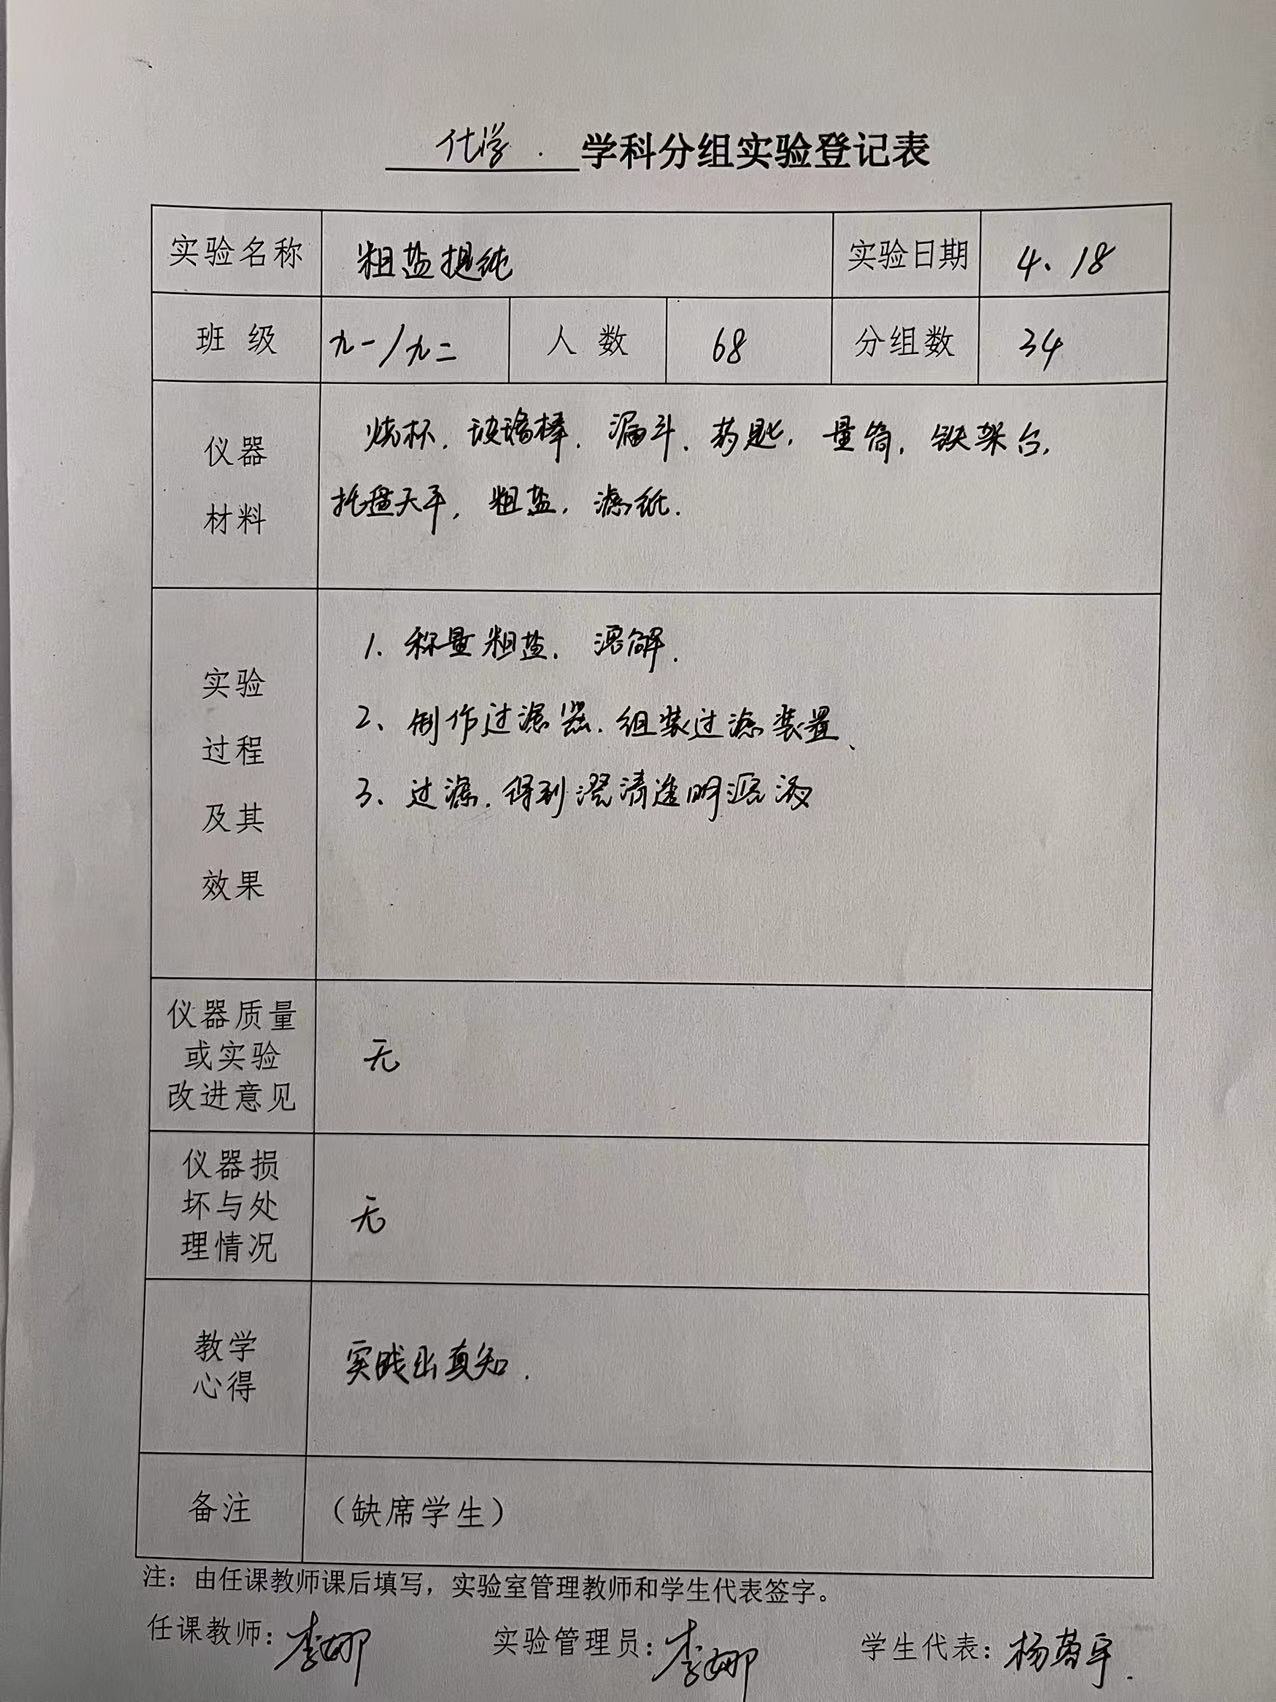 化学.学科分组实验登记表
实验名称 粗盐提纯 实验日期 4、18
班 级 九一/九二 人 数 68 分组数 34
仪器
材料
烧杯.玻璃棒.漏斗.药匙,量筒,铁架台,
托盘天平,粗盐,滤纸.
实验
过程
及其
效果
1、称量粗盐.溶解.
2、制作过滤器.组装过滤装置、
3、过滤.得到澄清透明溶液
仪器质量
或实验
改进意见
无
仪器损
坏与处
理情况
无
教学
心得
实践出真知.
备注 (缺席学生)
注:由任课教师课后填写,实验室管理教师和学生代表签字。
任课教师:李娜 实验管理员:李娜 学生代表:杨